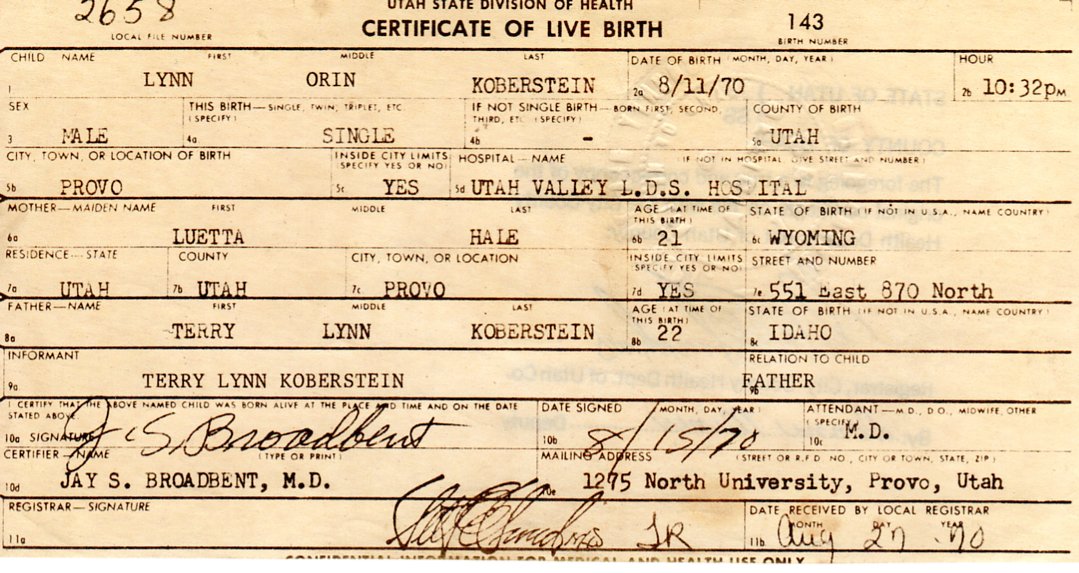 UTAH STATE DIVISION OF HEALTH
2658
CERTIFICATE OF LIVE BIRTH
143
LOCAL FILE NUMBER
BIRTH NUMBER
CHILD NAME FIRST MIDDLE LAST DATE OF BIRTH (MONTH, DAY, YEAR) HOUR
1 LYNN ORIN KOBERSTEIN 2a 8/11/70 2b 10:32PM
SEX THIS BIRTH—SINGLE, TWIN, TRIPLET, ETC. (SPECIFY) IF NOT SINGLE BIRTH—BORN FIRST, SECOND, THIRD, ETC. (SPECIFY) COUNTY OF BIRTH
3 MALE 4a SINGLE 4b - 5a UTAH
CITY, TOWN, OR LOCATION OF BIRTH INSIDE CITY LIMITS (SPECIFY YES OR NO) HOSPITAL—NAME (IF NOT IN HOSPITAL GIVE STREET AND NUMBER)
5b PROVO 5c YES 5d UTAH VALLEY L.D.S. HOSPITAL
MOTHER—MAIDEN NAME FIRST MIDDLE LAST AGE (AT TIME OF THIS BIRTH) STATE OF BIRTH (IF NOT IN U.S.A., NAME COUNTRY)
6a LUETTA HALE 6b 21 6c WYOMING
RESIDENCE—STATE COUNTY CITY, TOWN, OR LOCATION INSIDE CITY LIMITS (SPECIFY YES OR NO) STREET AND NUMBER
7a UTAH 7b UTAH 7c PROVO 7d YES 7e 551 East 870 North
FATHER—NAME FIRST MIDDLE LAST AGE (AT TIME OF THIS BIRTH) STATE OF BIRTH (IF NOT IN U.S.A., NAME COUNTRY)
8a TERRY LYNN KOBERSTEIN 8b 22 8c IDAHO
INFORMANT RELATION TO CHILD
9a TERRY LYNN KOBERSTEIN 9b FATHER
I CERTIFY THAT THE ABOVE NAMED CHILD WAS BORN ALIVE AT THE PLACE AND TIME AND ON THE DATE STATED ABOVE. DATE SIGNED (MONTH, DAY, YEAR) ATTENDANT—M.D., D.O., MIDWIFE, OTHER (SPECIFY)
10a SIGNATURE J. S. Broadbent 10b 8/15/70 10c M.D.
CERTIFIER—NAME (TYPE OR PRINT) MAILING ADDRESS (STREET OR R.F.D. NO., CITY OR TOWN, STATE, ZIP)
10d JAY S. BROADBENT, M.D. 10e 1275 North University, Provo, Utah
REGISTRAR—SIGNATURE DATE RECEIVED BY LOCAL REGISTRAR
MONTH DAY YEAR
11a JR 11b Aug 27 70
CONFIDENTIAL INFORMATION FOR MEDICAL AND HEALTH USE ONLY